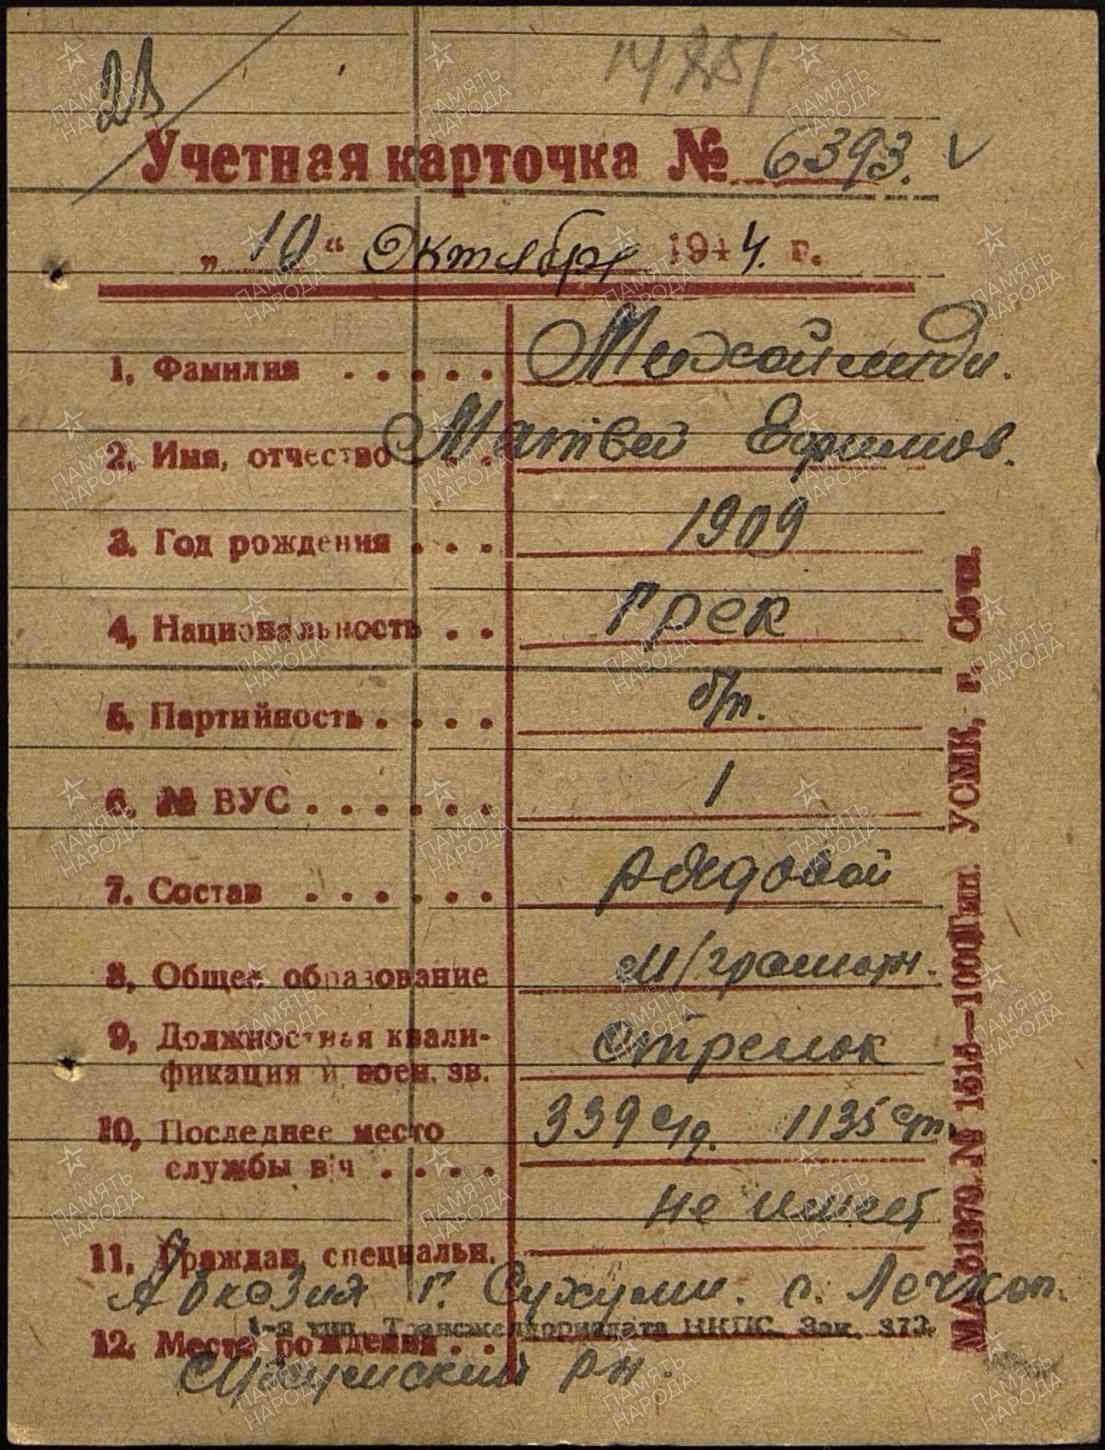 21
Учетная карточка № 6393.
„10" Октября 1944. г.
1, Фамилия
2, Имя, отчество Матвей Ефимов.
3. Год рождения 1909
4, Национальность грек
5, Партийность б/п.
6. № ВУС 1
7. Состав рядовой
8, Общее образование м/грамотн.
9, Должностная квали-
фикация и воен. зв. стрелок
10, Последнее место 339 с/д. 1135 с/п
службы в/ч
не имеет
11. Граждан, специальн.
Абхазия г. Сухуми. с.
1-я тип. Трансжелдориздата НКПС. Зак. 373.
12. Место рождения
Сухумский р-н.
МА 61879. № 1515—1000 Тип. УСМК, г. Сочи.
ПАМЯТЬ НАРОДА